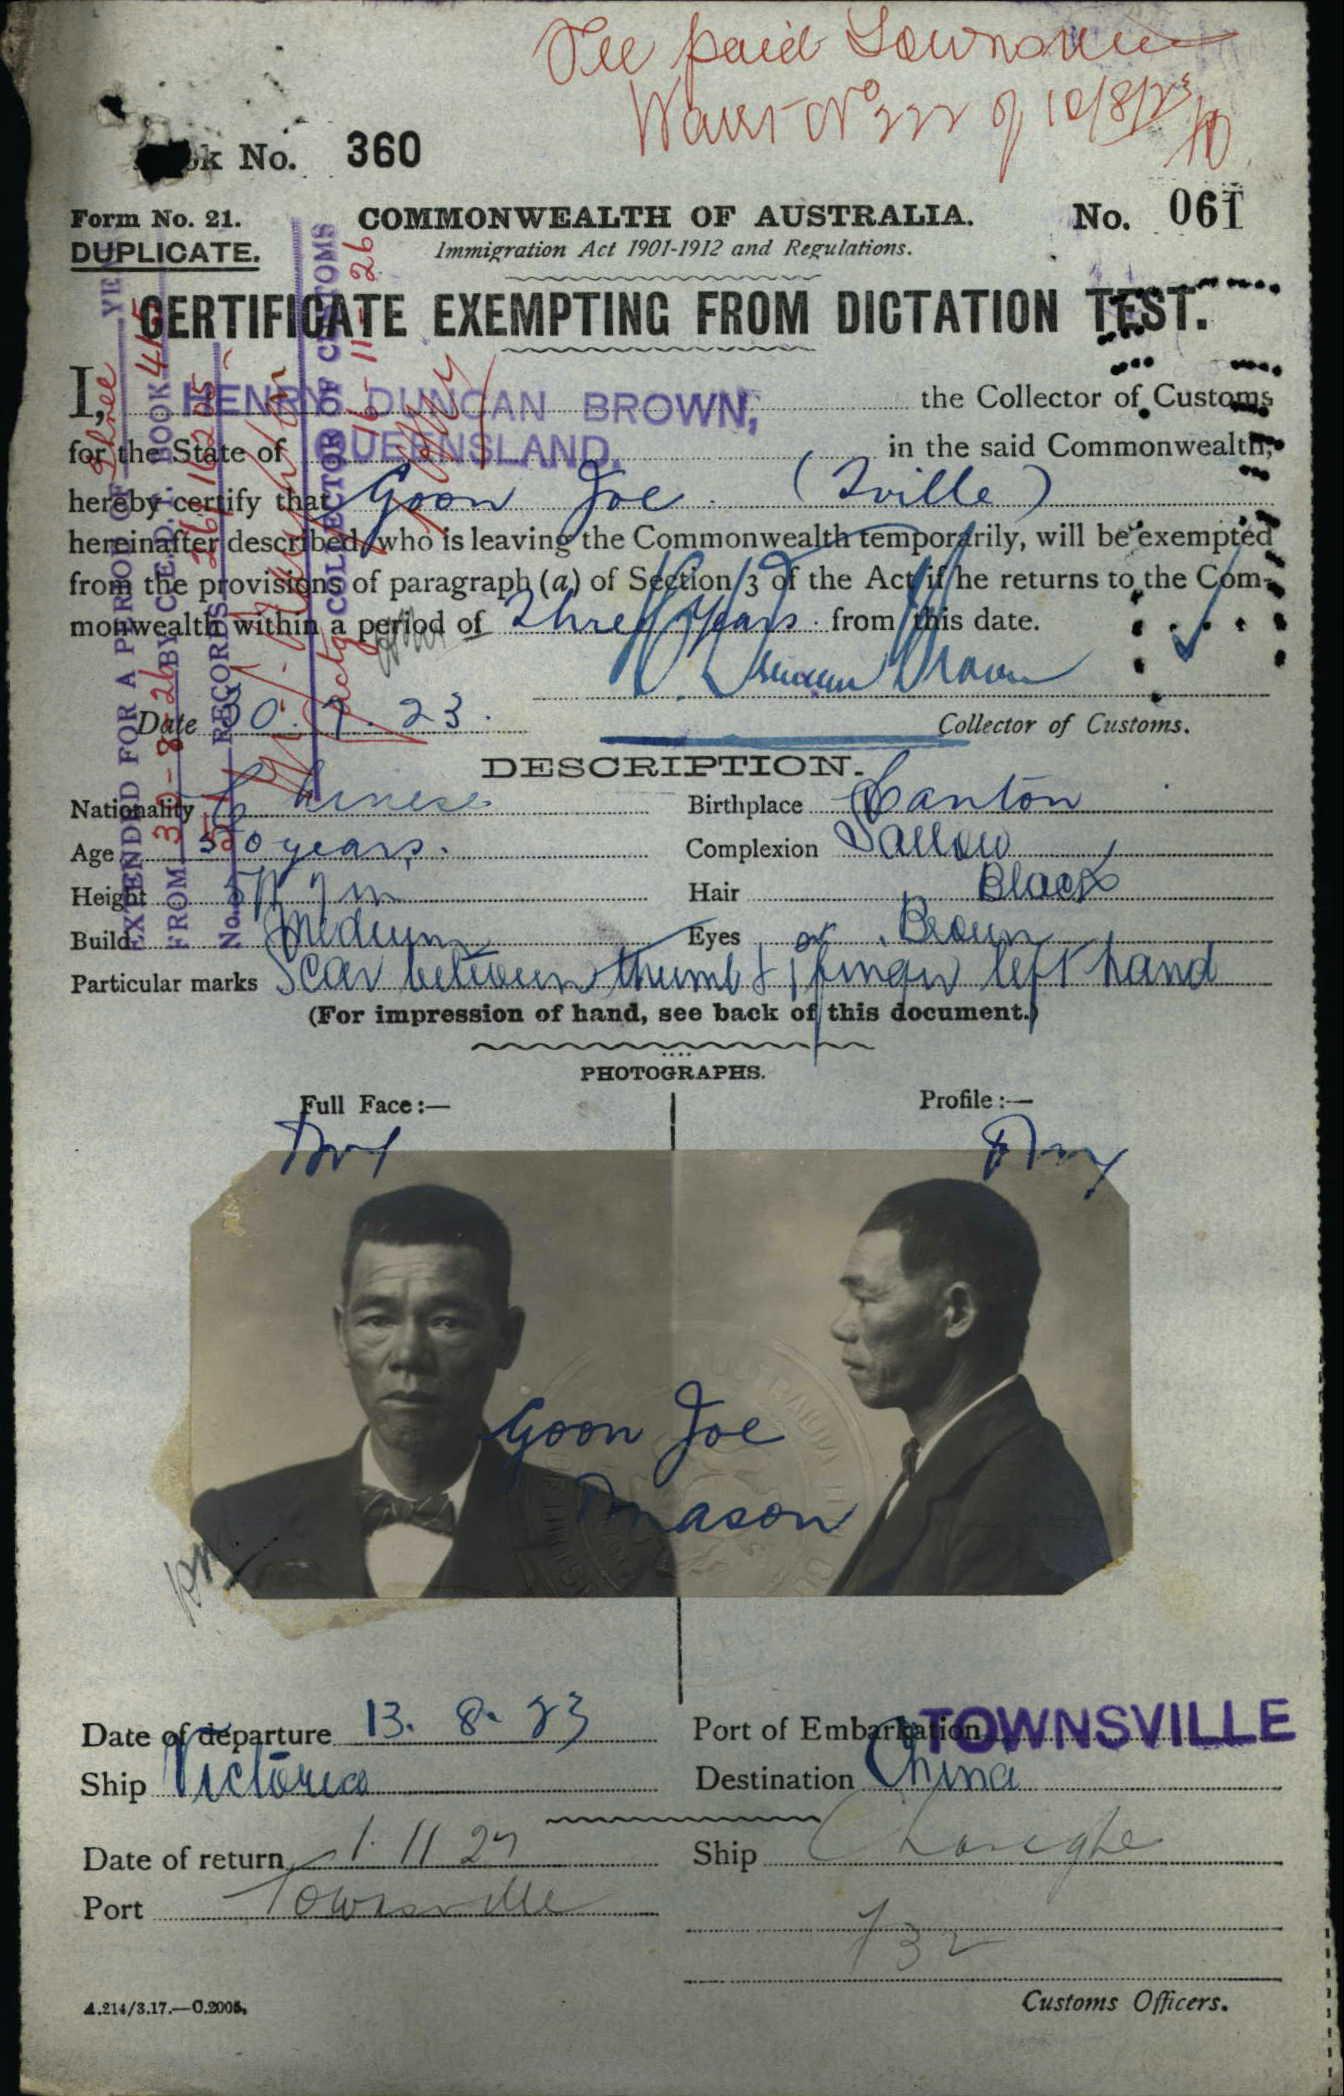 Fee paid Townsville
Warrt No 222 of 10/8/23
Book No. 360
Form No. 21.
COMMONWEALTH OF AUSTRALIA.
No. 061
DUPLICATE.
Immigration Act 1901-1912 and Regulations.
CERTIFICATE EXEMPTING FROM DICTATION TEST.
I, HENRY DUNCAN BROWN, the Collector of Customs
for the State of QUEENSLAND. in the said Commonwealth,
hereby certify that Goon Joe (Tville)
hereinafter described, who is leaving the Commonwealth temporarily, will be exempted
from the provisions of paragraph (a) of Section 3 of the Act if he returns to the Com-
monwealth within a period of Three Years from this date.
H. Duncan Brown
Date 30.7.23.
Collector of Customs.
EXTENDED FOR A PERIOD OF Three YE
FROM 30-8-26 BY C.E.D.T. BOOK 415
No. RECORDS 26/16205
COLLECTOR OF CUSTOMS
16-11-26
DESCRIPTION.
Nationality Chinese
Birthplace Canton
Age 50 years.
Complexion Sallow
Height 5ft 7 in
Hair Black
Build Medium
Eyes Brown
Particular marks Scar between thumb & 1 finger left hand
(For impression of hand, see back of this document.)
PHOTOGRAPHS.
Full Face :—
Profile :—
Goon Joe
Mason
Date of departure 13. 8. 23
Port of Embarkation TOWNSVILLE
Ship Victoria
Destination China
Date of return 1. 11 27
Ship Changte
Port Townsville
732
A.214/3.17.—C.2005.
Customs Officers.